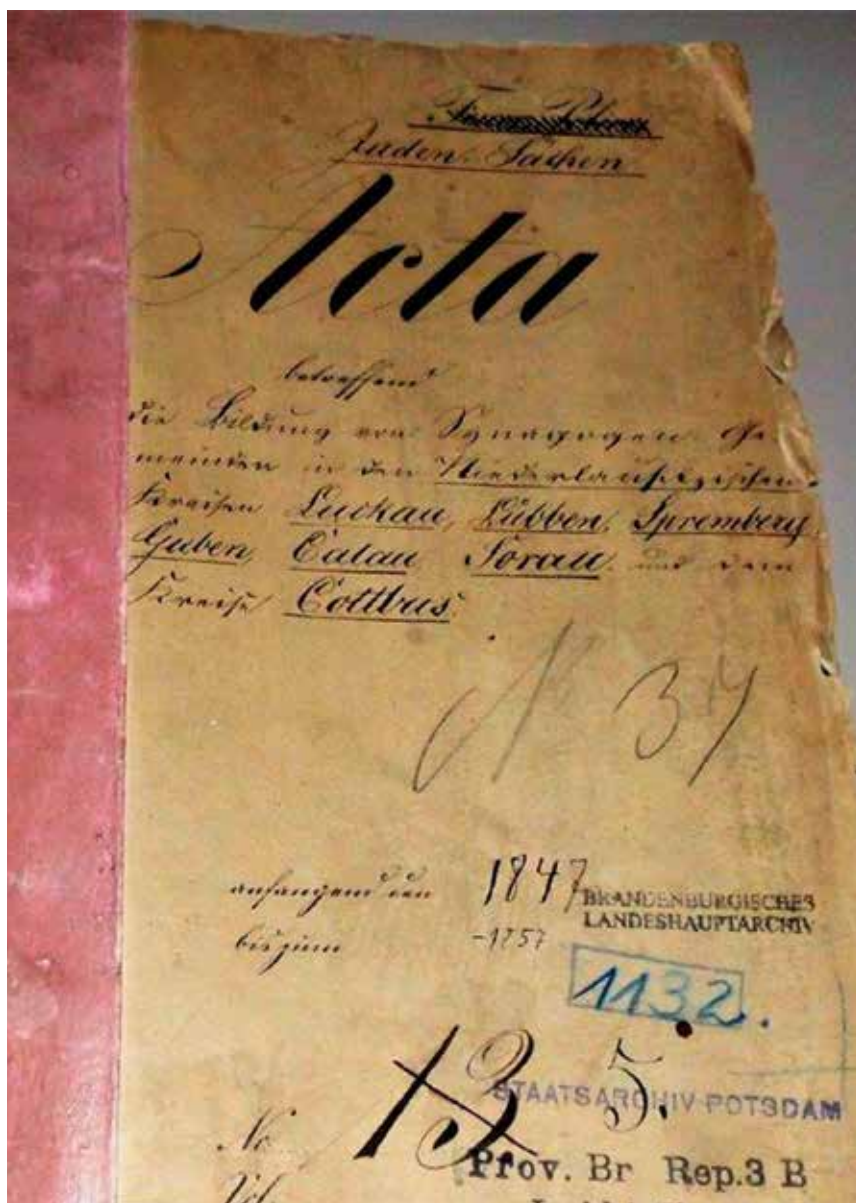 Juden-Sachen
Acta
betreffend
die Bildung von Synagogen-Ge-
meinden in den Niederlausitzischen
Kreisen Luckau, Lübben, Spremberg,
Guben, Calau Sorau und dem
Kreise Cottbus.
N 34
anfangend den 1847
bis zum -1857
BRANDENBURGISCHES
LANDESHAUPTARCHIV
1132.
13 5.
STAATSARCHIV POTSDAM
No
Prov. Br Rep.3 B
Vol.